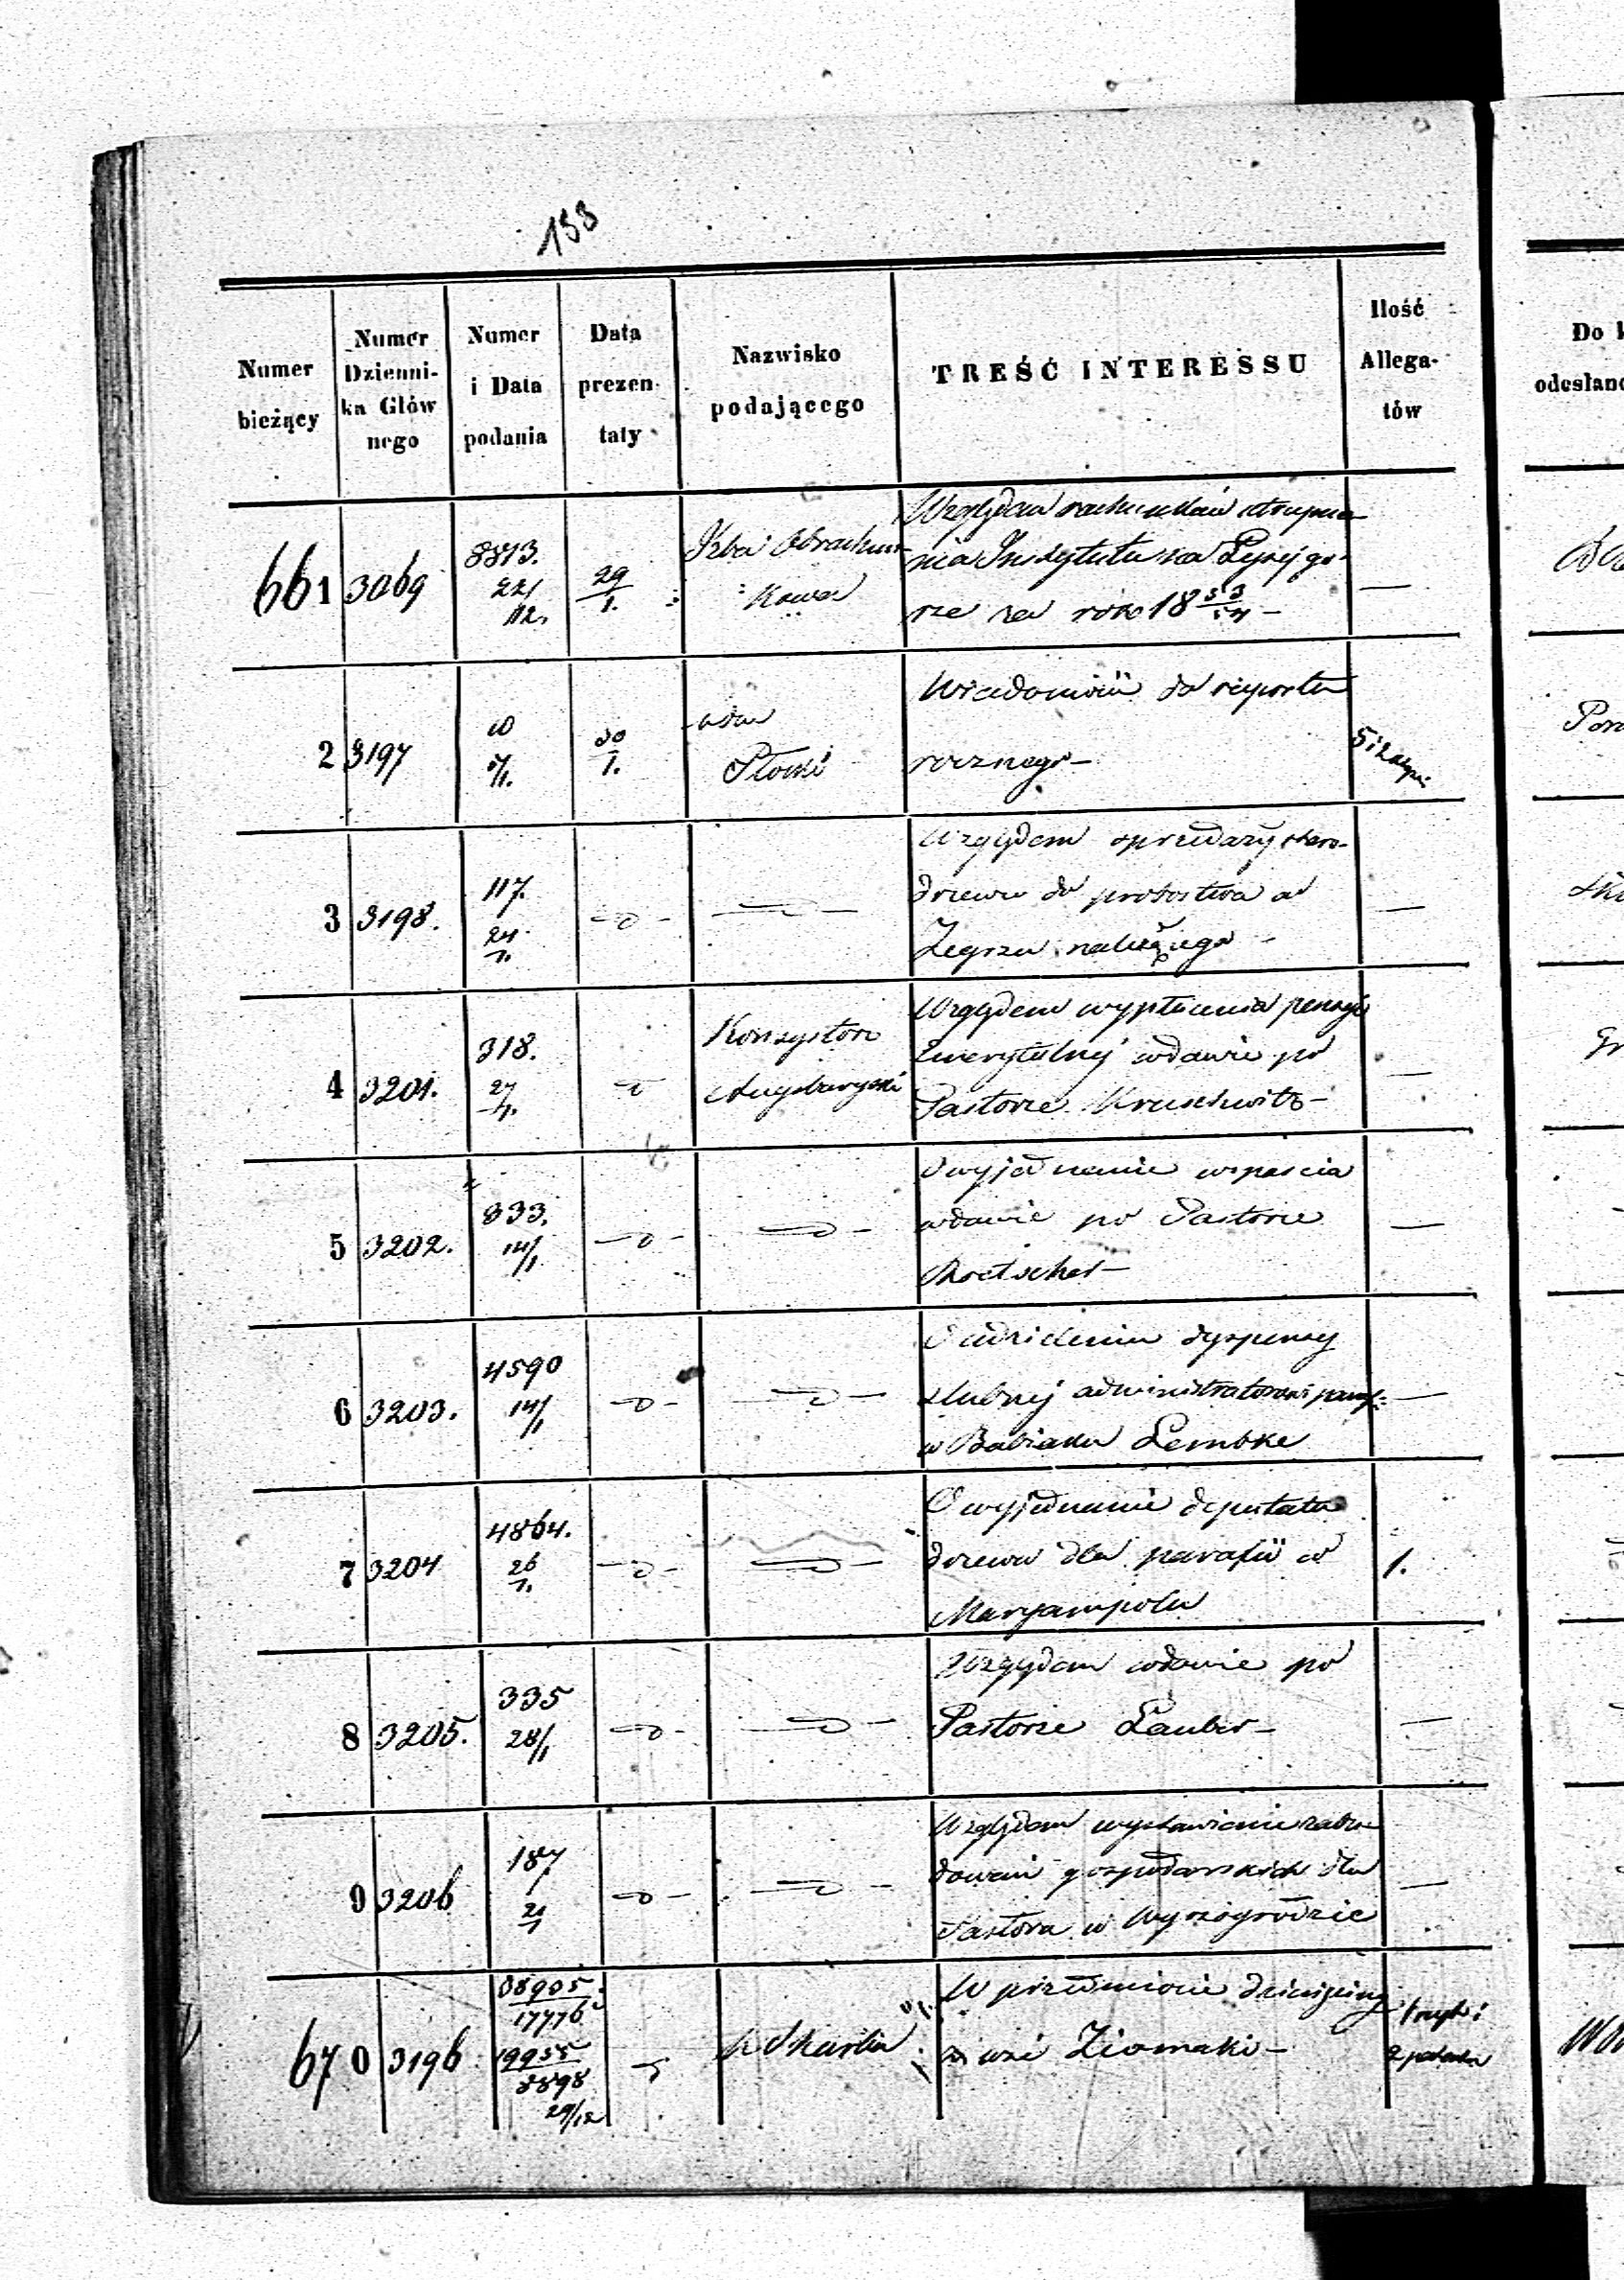 133
Numer bieżący
Numer Dzienni- ka Głów nego
Numer i Data podania
Data prezen- taty
Nazwisko podającego
TREŚĆ INTERESSU
Ilość Allega- tów
Do
odesłano
661 3069 8813. 22/12. 29/1. Izba Obrachun-
kowa
Względem rachunków utrzyma-
nia Instytutu na Łysej gó-
rze za rok 18 53/54 —
2 3197 10 30/1.
Płocki
Wiadomości do raportu
rocznego —
3 3198. 117. 24/1. —o— —o— —
Względem sprzedaży staro-
drzewu do probostwa w
Zegrzu należącego —
4 3201. 318. 27/1. —o—
Konsystorz
Augsburgski
Względem wypłacenia pensyi
Emerytalnej wdowie po
Pastorze Kruschwitz — —
5 3202. 333. 14/1 —o— —o— —
O wyjednanie wsparcia
wdowie po Pastorze
6 3203. 4590 14/1 —o— —o— —
O udzielenie dyspensy
ślubnej administratorowi paraf:
w Babiaku Lembke
7 3204 4864. 26/1. —o— —o— 1.
O wyjednanie deputatu
drzewa dla parafii w
Maryampolu
8 3205. 335 28/1 —o— —o— —
Względem wdowie po
Pastorze Lauber —
9 3206 187 21/1 —o— —o— —
Względem wystawienia zabu-
dowań gospodarskich dla
Pastora w Wyszogrodzie
670 3196 17776 8898 29/12
W przedmiocie dziesięciny
z wsi Ziomaki —